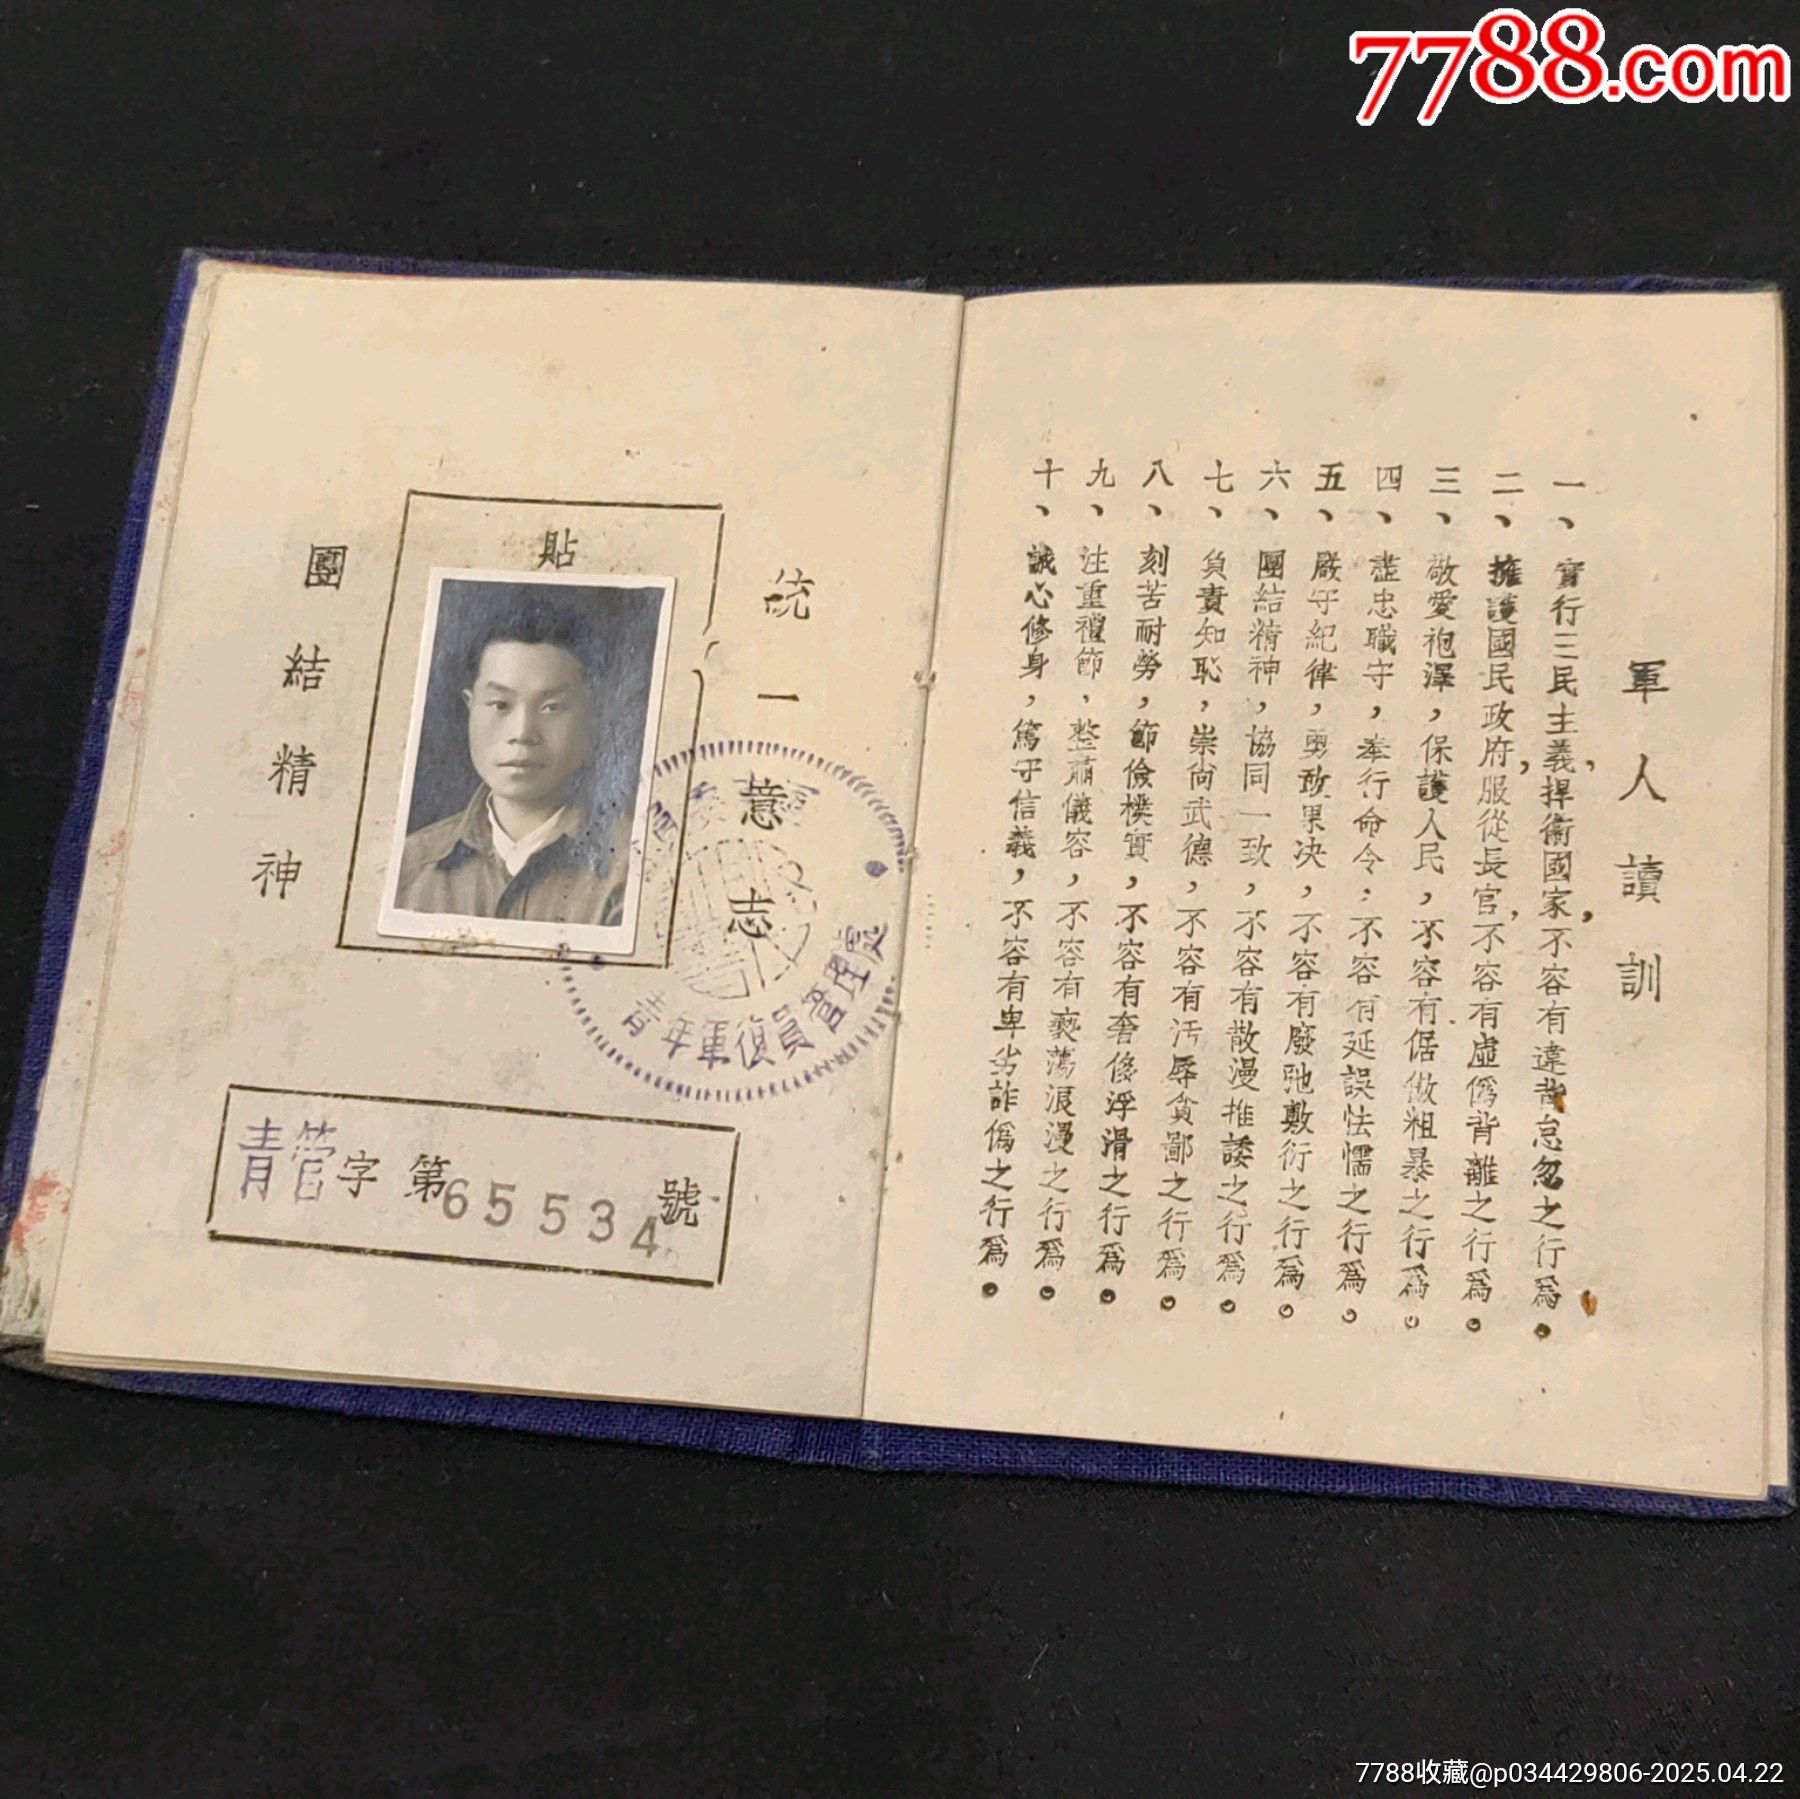 7788.com
軍人讀訓
一、實行三民主義，捍衞國家，不容有違背怠忽之行爲。
二、擁護國民政府，服從長官，不容有虛僞背離之行爲。
三、敬愛袍澤，保護人民，不容有倨傲粗暴之行爲。
四、盡忠職守，奉行命令；不容有延誤怯懦之行爲。
五、嚴守紀律，勇敢果決，不容有廢弛敷衍之行爲。
六、團結精神，協同一致，不容有散漫推諉之行爲。
七、負責知恥，崇尚武德，不容有污辱貪鄙之行爲。
八、刻苦耐勞，節儉樸實，不容有奢侈浮滑之行爲。
九、注重禮節，整肅儀容，不容有褻蕩浪漫之行爲。
十、誠心修身，篤守信義，不容有卑劣詐僞之行爲。
統一意志
貼
團結精神
青年軍復員管理處
青管字第65534號
7788收藏@p034429806-2025.04.22